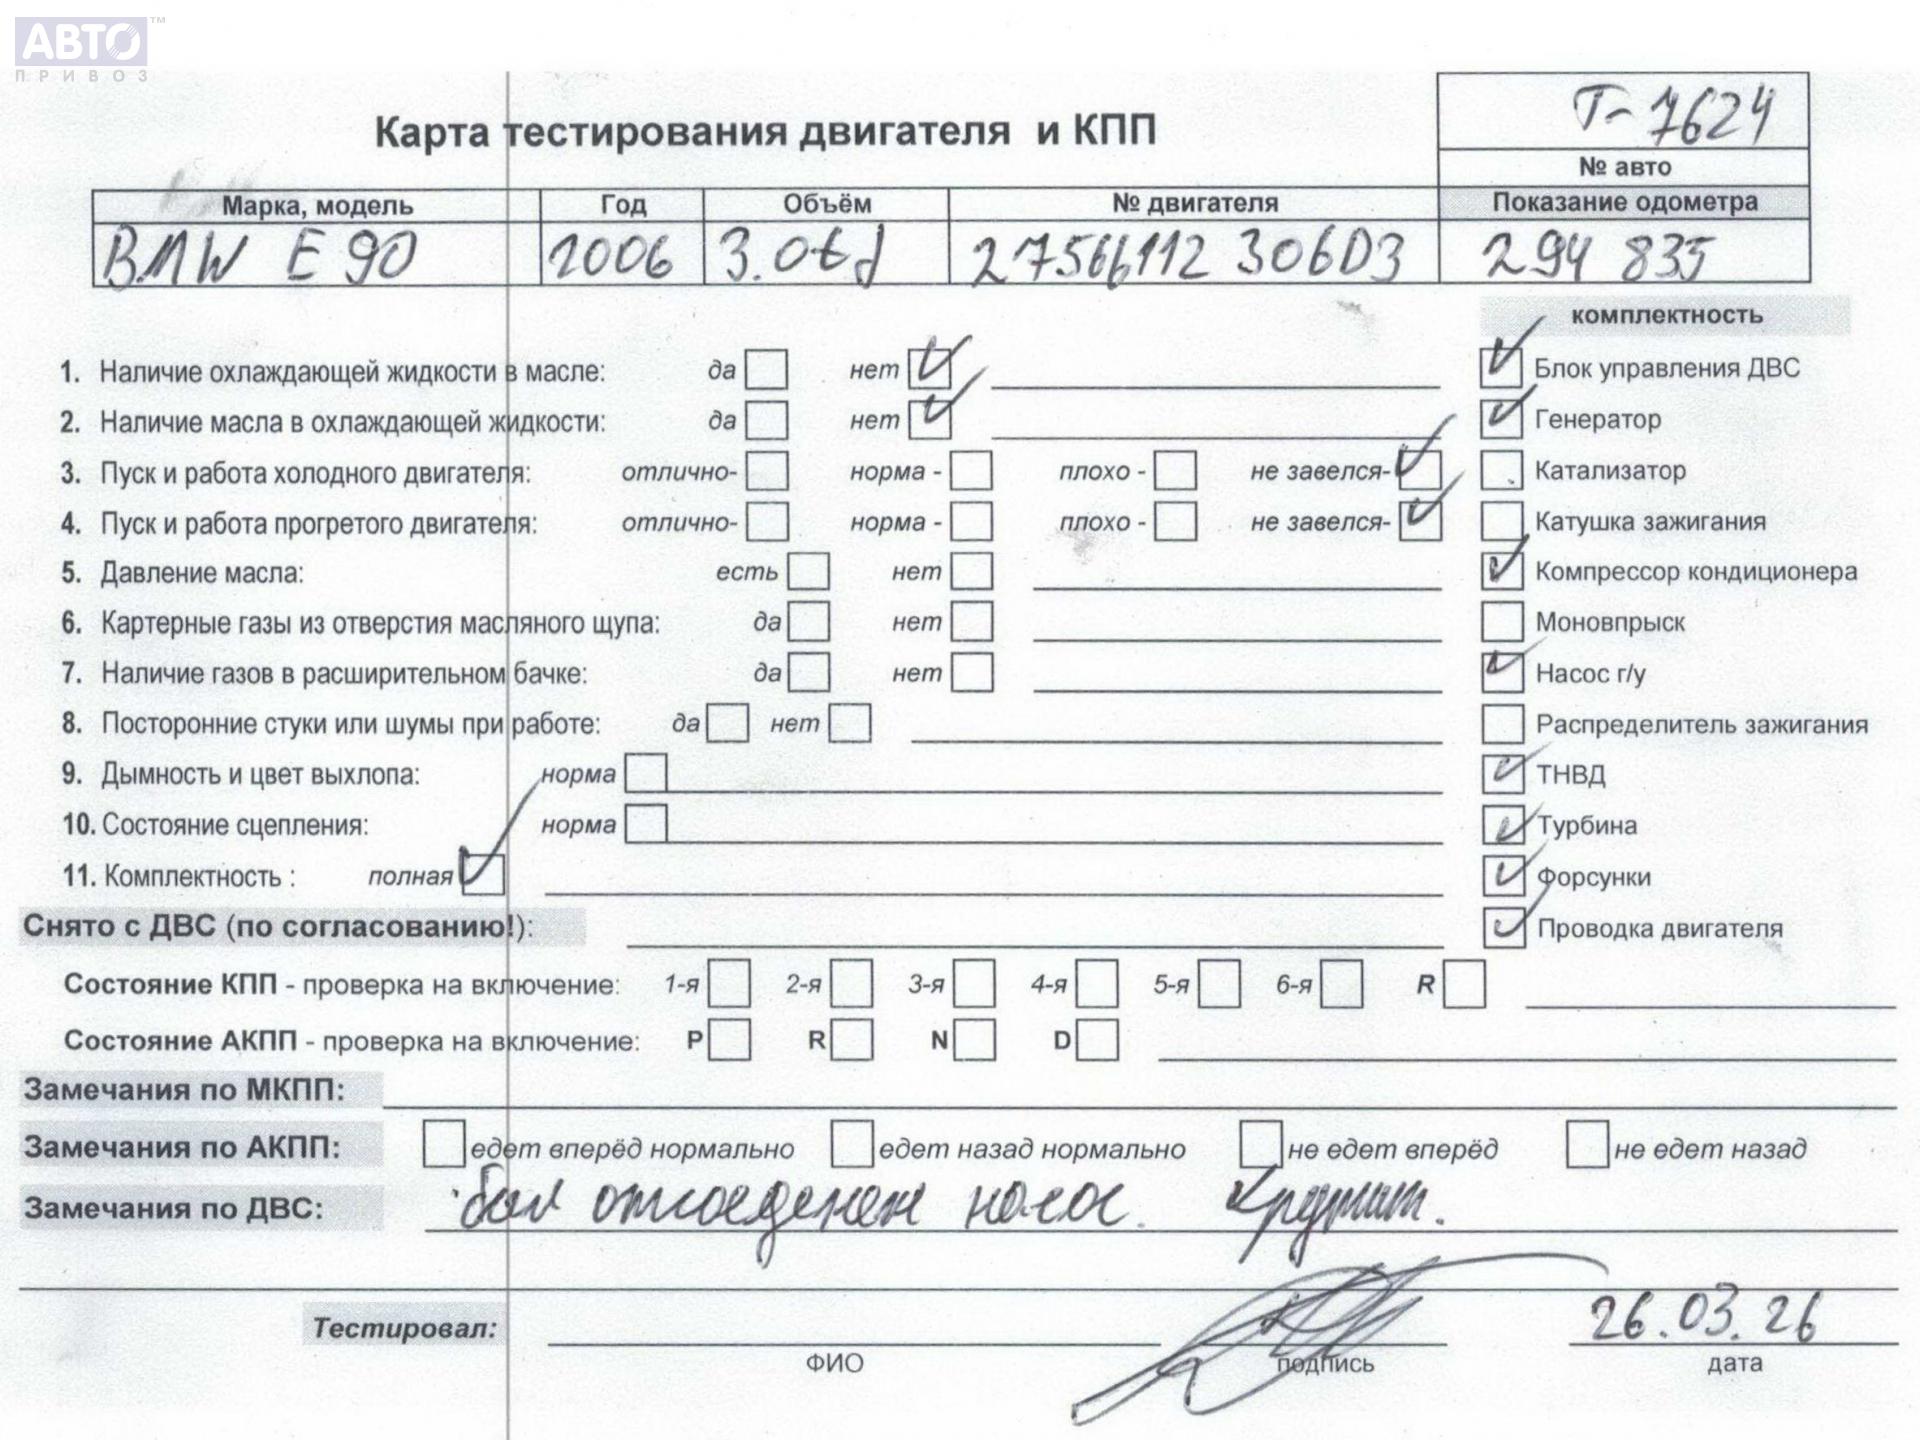 АВТО™
ПРИВОЗ
Т-7624
Карта тестирования двигателя и КПП
№ авто
Марка, модель Год Объём № двигателя Показание одометра
BMW E90 2006 3.0td 27566112 306D3 294 835
комплектность
1. Наличие охлаждающей жидкости в масле: да нет Блок управления ДВС
2. Наличие масла в охлаждающей жидкости: да нет Генератор
3. Пуск и работа холодного двигателя: отлично- норма - плохо - не завелся- Катализатор
4. Пуск и работа прогретого двигателя: отлично- норма - плохо - не завелся- Катушка зажигания
5. Давление масла: есть нет Компрессор кондиционера
6. Картерные газы из отверстия масляного щупа: да нет Моновпрыск
7. Наличие газов в расширительном бачке: да нет Насос г/у
8. Посторонние стуки или шумы при работе: да нет Распределитель зажигания
9. Дымность и цвет выхлопа: норма ТНВД
10. Состояние сцепления: норма Турбина
11. Комплектность : полная Форсунки
Снято с ДВС (по согласованию!): Проводка двигателя
Состояние КПП - проверка на включение: 1-я 2-я 3-я 4-я 5-я 6-я R
Состояние АКПП - проверка на включение: P R N D
Замечания по МКПП:
Замечания по АКПП: едет вперёд нормально едет назад нормально не едет вперёд не едет назад
Замечания по ДВС: был отсоединен насос. Крутит.
Тестировал: 26.03.26
ФИО подпись дата